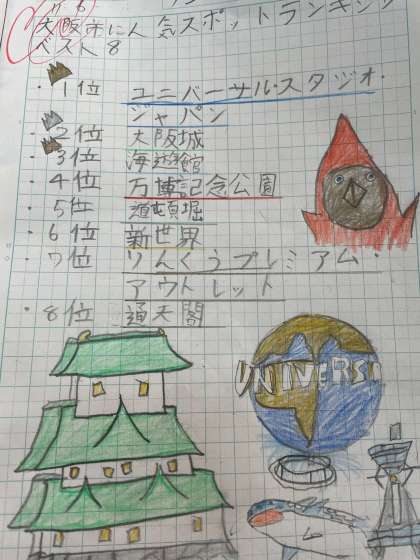 大阪市にん気スポットランキング
ベスト8
・1位 ユニバーサル・スタジオ・
ジャパン
・2位 大阪城
・3位 海遊館
・4位 万博記念公園
・5位 道頓堀
・6位 新世界
・7位 りんくうプレミアム・
アウトレット
・8位 通天閣
UNIVERSA